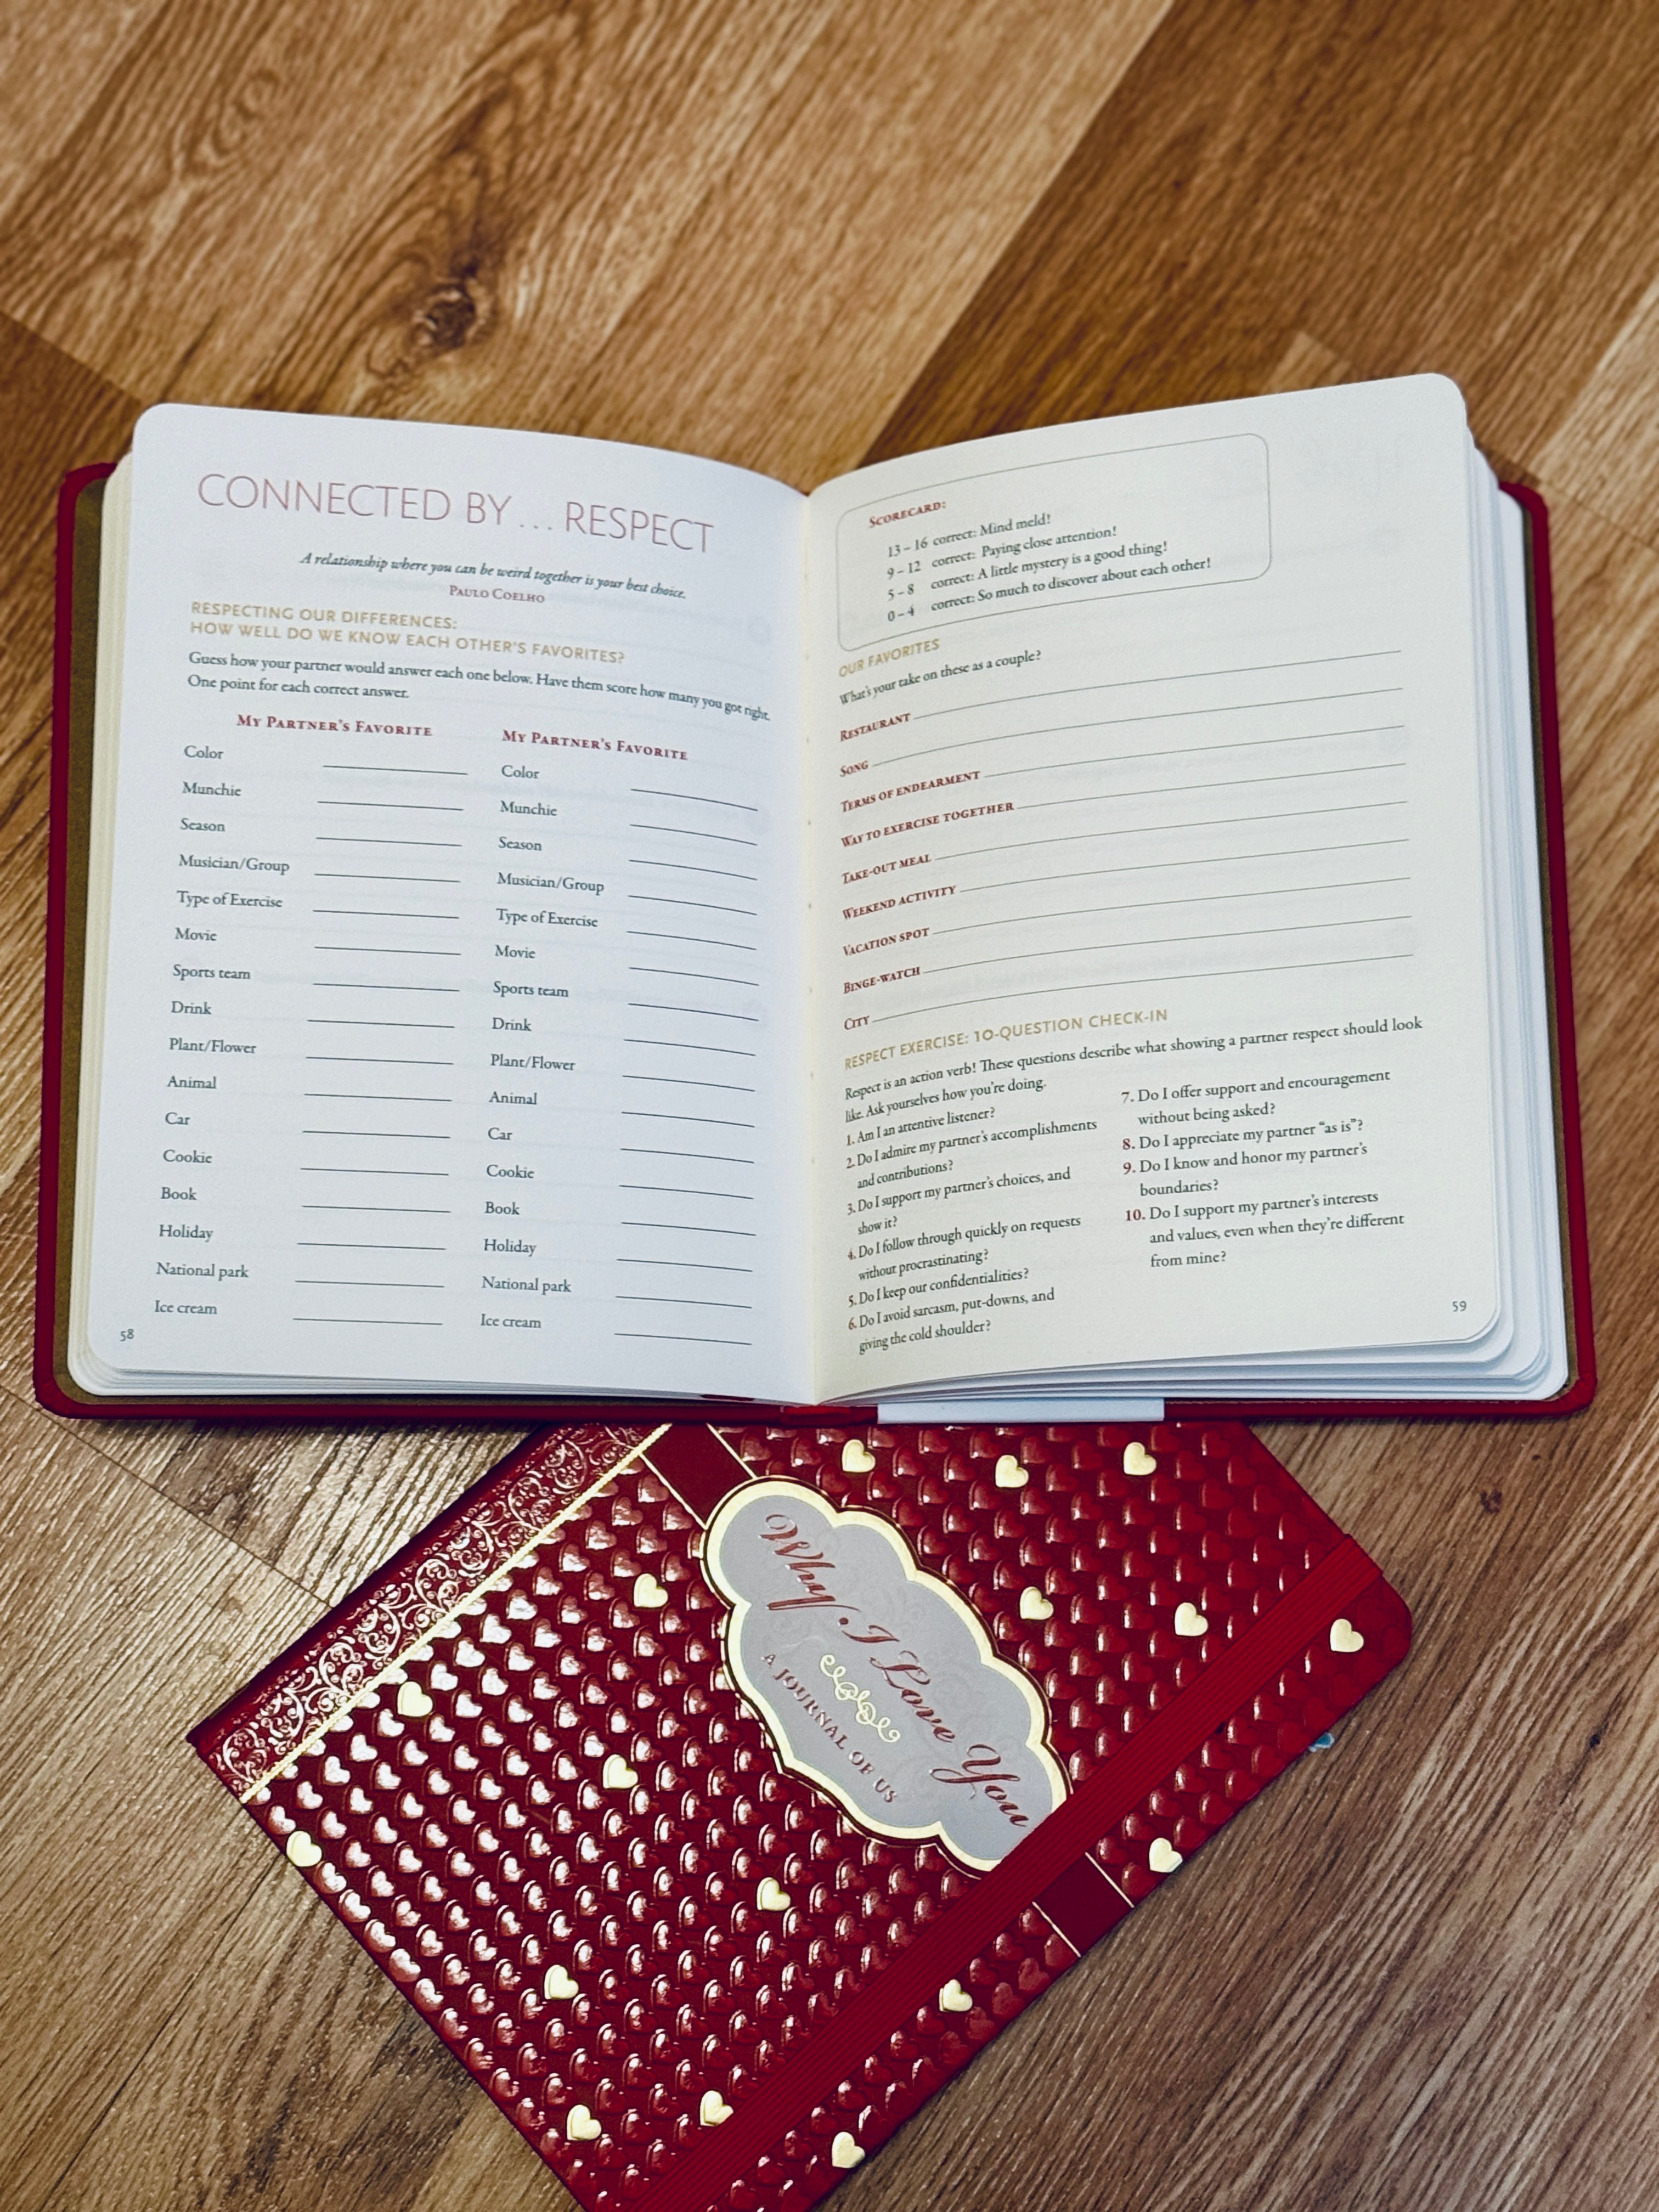 CONNECTED BY ... RESPECT
A relationship where you can be weird together is your best choice.
PAULO COELHO
RESPECTING OUR DIFFERENCES:
HOW WELL DO WE KNOW EACH OTHER'S FAVORITES?
Guess how your partner would answer each one below. Have them score how many you got right.
One point for each correct answer.
MY PARTNER'S FAVORITE
Color
Munchie
Season
Musician/Group
Type of Exercise
Movie
Sports team
Drink
Plant/Flower
Animal
Car
Cookie
Book
Holiday
National park
Ice cream
MY PARTNER'S FAVORITE
Color
Munchie
Season
Musician/Group
Type of Exercise
Movie
Sports team
Drink
Plant/Flower
Animal
Car
Cookie
Book
Holiday
National park
Ice cream
58
SCORECARD:
13–16 correct: Mind meld!
9–12 correct: Paying close attention!
5–8 correct: A little mystery is a good thing!
0–4 correct: So much to discover about each other!
OUR FAVORITES
What's your take on these as a couple?
RESTAURANT
SONG
TERMS OF ENDEARMENT
WAY TO EXERCISE TOGETHER
TAKE-OUT MEAL
WEEKEND ACTIVITY
VACATION SPOT
BINGE-WATCH
CITY
RESPECT EXERCISE: 10-QUESTION CHECK-IN
Respect is an action verb! These questions describe what showing a partner respect should look
like. Ask yourselves how you're doing.
1. Am I an attentive listener?
2. Do I admire my partner's accomplishments
and contributions?
3. Do I support my partner's choices, and
show it?
4. Do I follow through quickly on requests
without procrastinating?
5. Do I keep our confidentialities?
6. Do I avoid sarcasm, put-downs, and
giving the cold shoulder?
7. Do I offer support and encouragement
without being asked?
8. Do I appreciate my partner “as is”?
9. Do I know and honor my partner's
boundaries?
10. Do I support my partner's interests
and values, even when they're different
from mine?
59
Why I Love You
A JOURNAL OF US